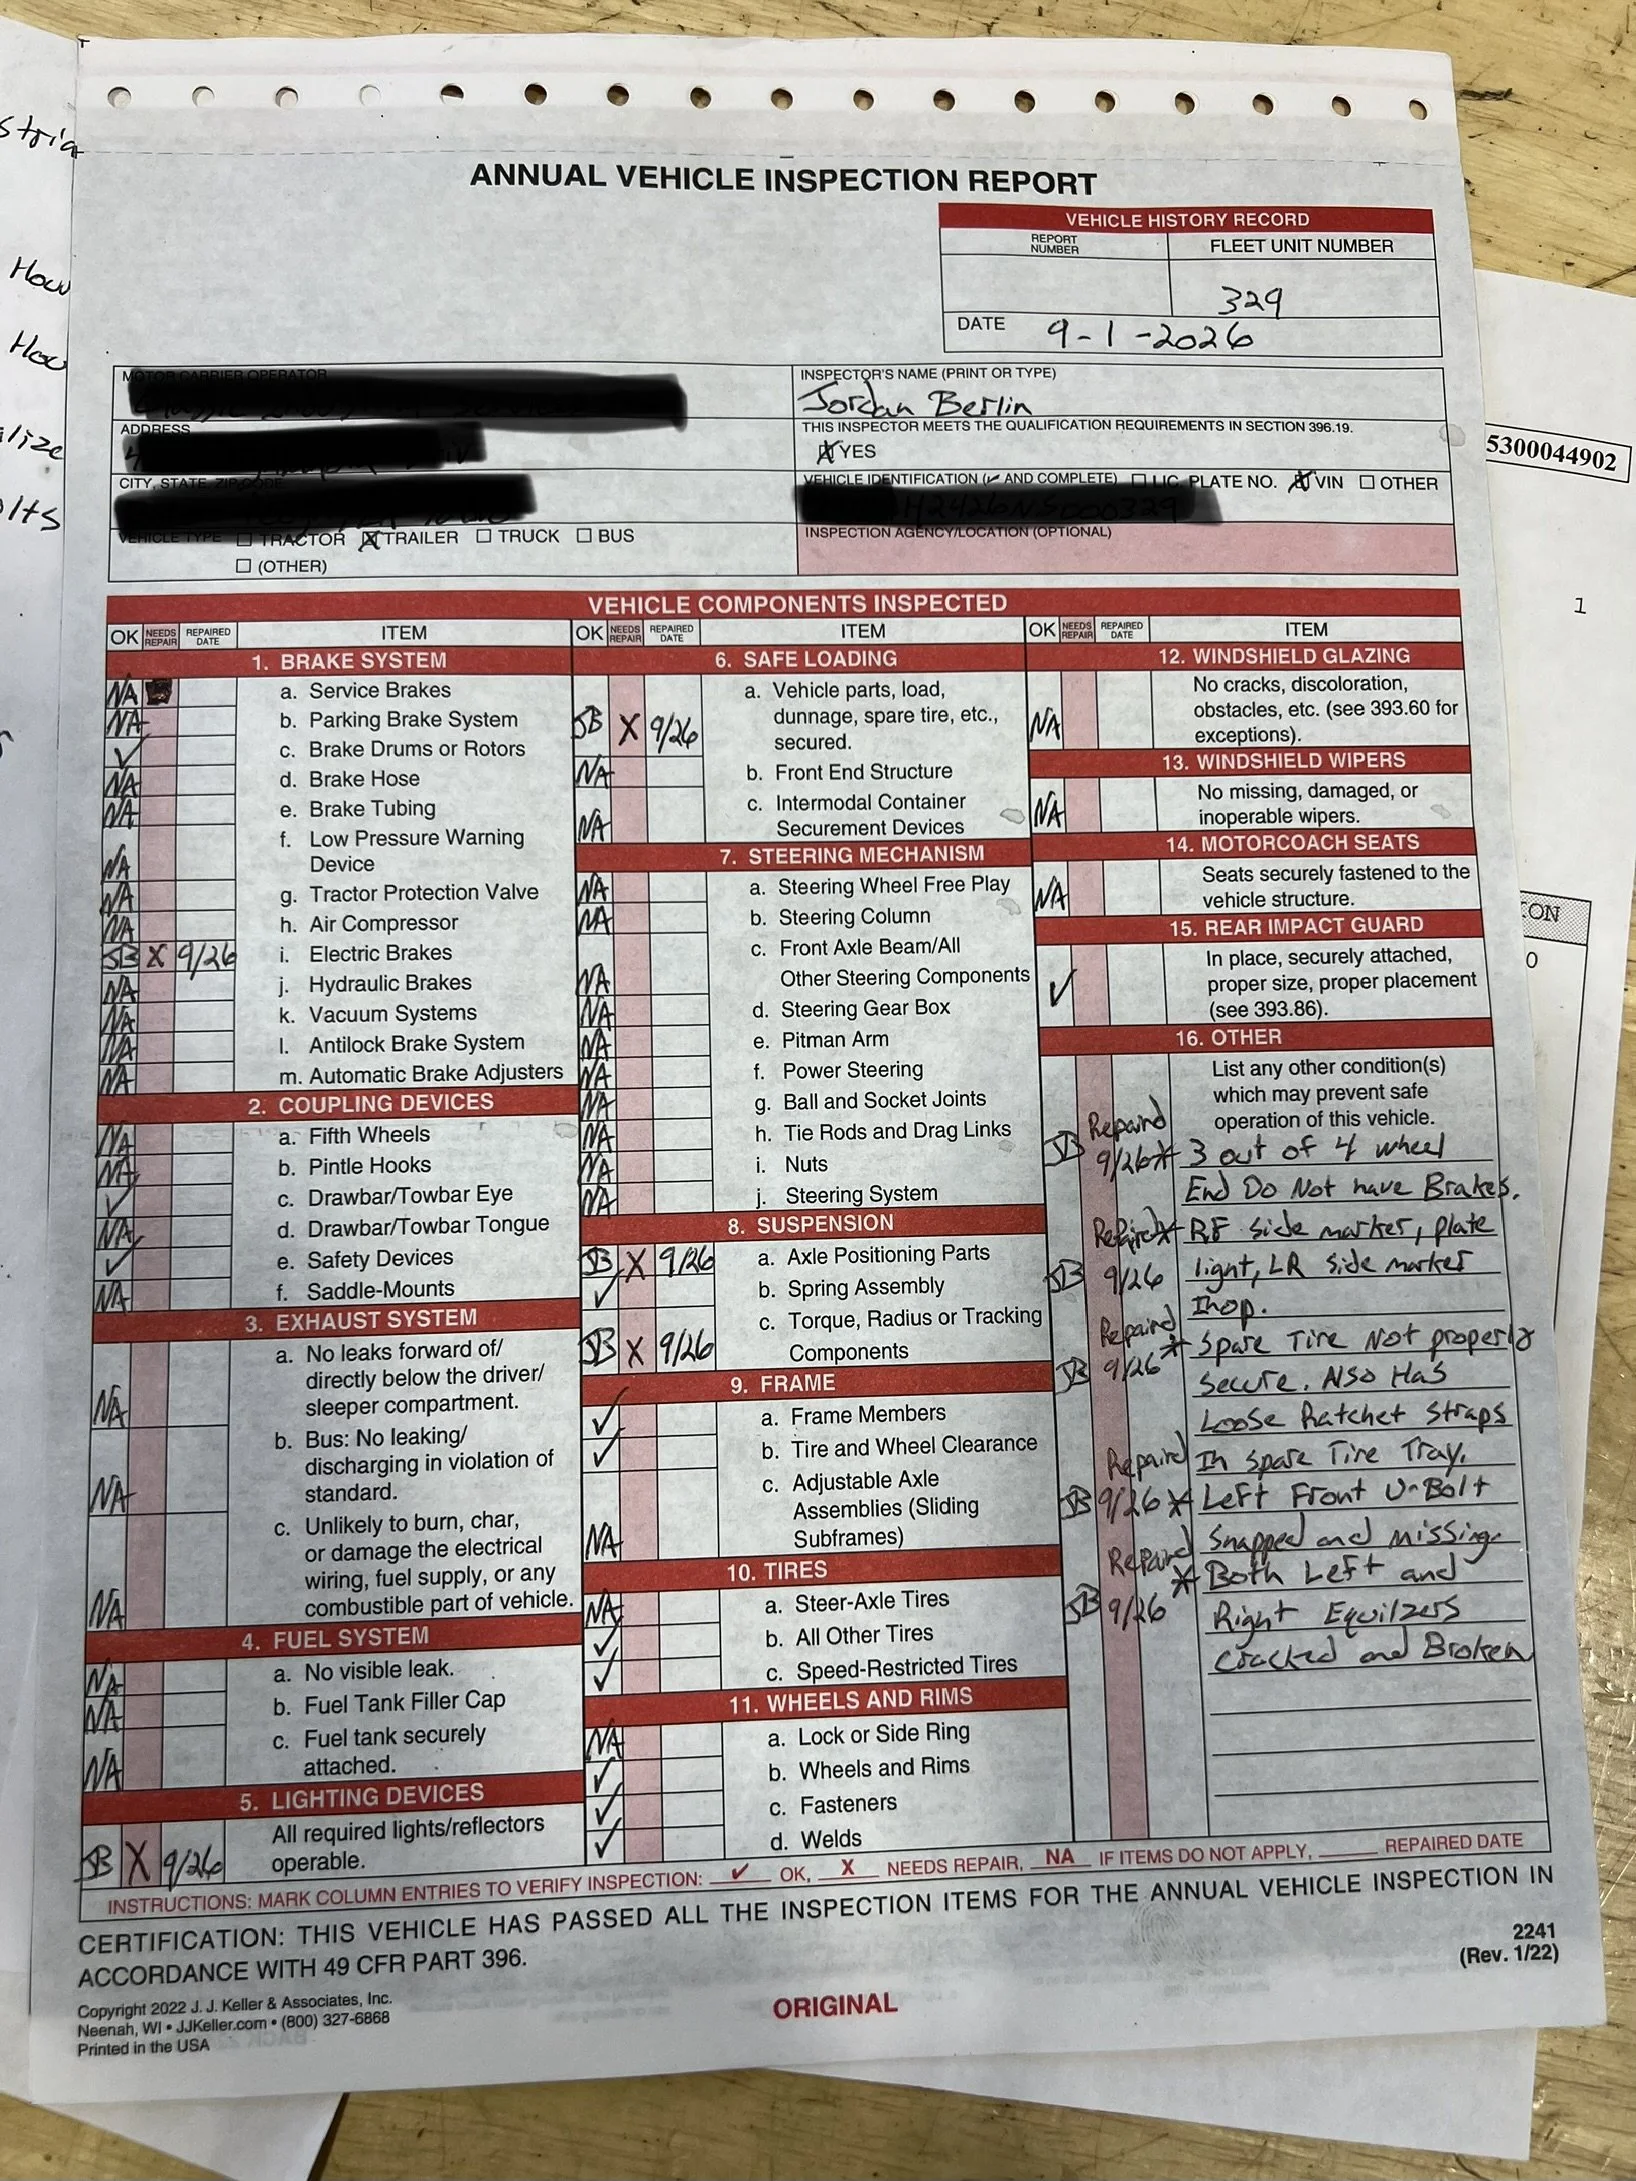 stria
How
How
alize
olts
5300044902
1
ION
0
ANNUAL VEHICLE INSPECTION REPORT
VEHICLE HISTORY RECORD
REPORT NUMBER
FLEET UNIT NUMBER
329
DATE 9-1-2026
MOTOR CARRIER OPERATOR
INSPECTOR'S NAME (PRINT OR TYPE)
Jordan Berlin
ADDRESS
THIS INSPECTOR MEETS THE QUALIFICATION REQUIREMENTS IN SECTION 396.19.
X YES
CITY, STATE, ZIP CODE
VEHICLE IDENTIFICATION (✓ AND COMPLETE) ☐ LIC. PLATE NO. X VIN ☐ OTHER
VEHICLE TYPE ☐ TRACTOR X TRAILER ☐ TRUCK ☐ BUS
☐ (OTHER)
INSPECTION AGENCY/LOCATION (OPTIONAL)
VEHICLE COMPONENTS INSPECTED
OK NEEDS REPAIR REPAIRED DATE ITEM
1. BRAKE SYSTEM
NA a. Service Brakes
NA b. Parking Brake System
✓ c. Brake Drums or Rotors
NA d. Brake Hose
NA e. Brake Tubing
f. Low Pressure Warning
NA Device
NA g. Tractor Protection Valve
NA h. Air Compressor
JB X 9/26 i. Electric Brakes
NA j. Hydraulic Brakes
NA k. Vacuum Systems
NA l. Antilock Brake System
NA m. Automatic Brake Adjusters
2. COUPLING DEVICES
NA a. Fifth Wheels
NA b. Pintle Hooks
✓ c. Drawbar/Towbar Eye
NA d. Drawbar/Towbar Tongue
✓ e. Safety Devices
NA f. Saddle-Mounts
3. EXHAUST SYSTEM
a. No leaks forward of/
directly below the driver/
NA sleeper compartment.
b. Bus: No leaking/
discharging in violation of
NA standard.
c. Unlikely to burn, char,
or damage the electrical
wiring, fuel supply, or any
NA combustible part of vehicle.
4. FUEL SYSTEM
NA a. No visible leak.
NA b. Fuel Tank Filler Cap
c. Fuel tank securely
NA attached.
5. LIGHTING DEVICES
All required lights/reflectors
JB X 9/26 operable.
OK NEEDS REPAIR REPAIRED DATE ITEM
6. SAFE LOADING
a. Vehicle parts, load,
JB X 9/26 dunnage, spare tire, etc.,
secured.
NA b. Front End Structure
c. Intermodal Container
NA Securement Devices
7. STEERING MECHANISM
NA a. Steering Wheel Free Play
NA b. Steering Column
c. Front Axle Beam/All
NA Other Steering Components
NA d. Steering Gear Box
NA e. Pitman Arm
NA f. Power Steering
NA g. Ball and Socket Joints
NA h. Tie Rods and Drag Links
NA i. Nuts
NA j. Steering System
8. SUSPENSION
JB X 9/26 a. Axle Positioning Parts
✓ b. Spring Assembly
c. Torque, Radius or Tracking
JB X 9/26 Components
9. FRAME
✓ a. Frame Members
✓ b. Tire and Wheel Clearance
c. Adjustable Axle
Assemblies (Sliding
NA Subframes)
10. TIRES
NA a. Steer-Axle Tires
✓ b. All Other Tires
✓ c. Speed-Restricted Tires
11. WHEELS AND RIMS
NA a. Lock or Side Ring
✓ b. Wheels and Rims
✓ c. Fasteners
✓ d. Welds
OK NEEDS REPAIR REPAIRED DATE ITEM
12. WINDSHIELD GLAZING
No cracks, discoloration,
NA obstacles, etc. (see 393.60 for
exceptions).
13. WINDSHIELD WIPERS
NA No missing, damaged, or
inoperable wipers.
14. MOTORCOACH SEATS
NA Seats securely fastened to the
vehicle structure.
15. REAR IMPACT GUARD
In place, securely attached,
✓ proper size, proper placement
(see 393.86).
16. OTHER
List any other condition(s)
which may prevent safe
operation of this vehicle.
Repaired
JB 9/26 * 3 out of 4 wheel
End Do Not have Brakes.
Repaired * RF side marker, plate
JB 9/26 light, LR side marker
Inop.
Repaired
JB 9/26 * Spare Tire Not properly
secure. Also Has
Loose Ratchet Straps
Repaired In spare Tire Tray.
JB 9/26 * Left Front U-Bolt
Snapped and missing.
Repaired * Both Left and
JB 9/26 Right Equilzers
Cracked and Broken
INSTRUCTIONS: MARK COLUMN ENTRIES TO VERIFY INSPECTION: ✓ OK, X NEEDS REPAIR, NA IF ITEMS DO NOT APPLY, ____ REPAIRED DATE
CERTIFICATION: THIS VEHICLE HAS PASSED ALL THE INSPECTION ITEMS FOR THE ANNUAL VEHICLE INSPECTION IN
ACCORDANCE WITH 49 CFR PART 396.
2241
(Rev. 1/22)
Copyright 2022 J. J. Keller & Associates, Inc.
Neenah, WI • JJKeller.com • (800) 327-6868
Printed in the USA
ORIGINAL